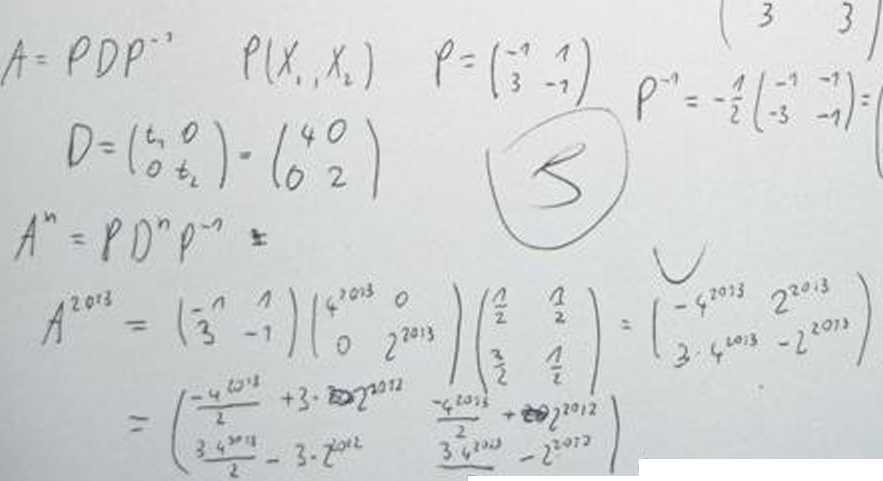 ( 3 3 )
A = PDP⁻¹ P(X₁, X₂) P = (-1 1; 3 -1)
P⁻¹ = -1/2 (-1 -1; -3 -1) = (
D = (t₁ 0; 0 t₂) = (4 0; 0 2)
5
Aⁿ = PDⁿP⁻¹ =
A²⁰¹³ = (-1 1; 3 -1)(4²⁰¹³ 0; 0 2²⁰¹³)(1/2 1/2; 3/2 1/2) = (-4²⁰¹³ 2²⁰¹³; 3·4²⁰¹³ -2²⁰¹³)
= (-4²⁰¹³/2 + 3·2²⁰¹² -4²⁰¹³/2 + 2²⁰¹²; 3·4²⁰¹³/2 - 3·2²⁰¹² 3·4²⁰¹³ - 2²⁰¹²)